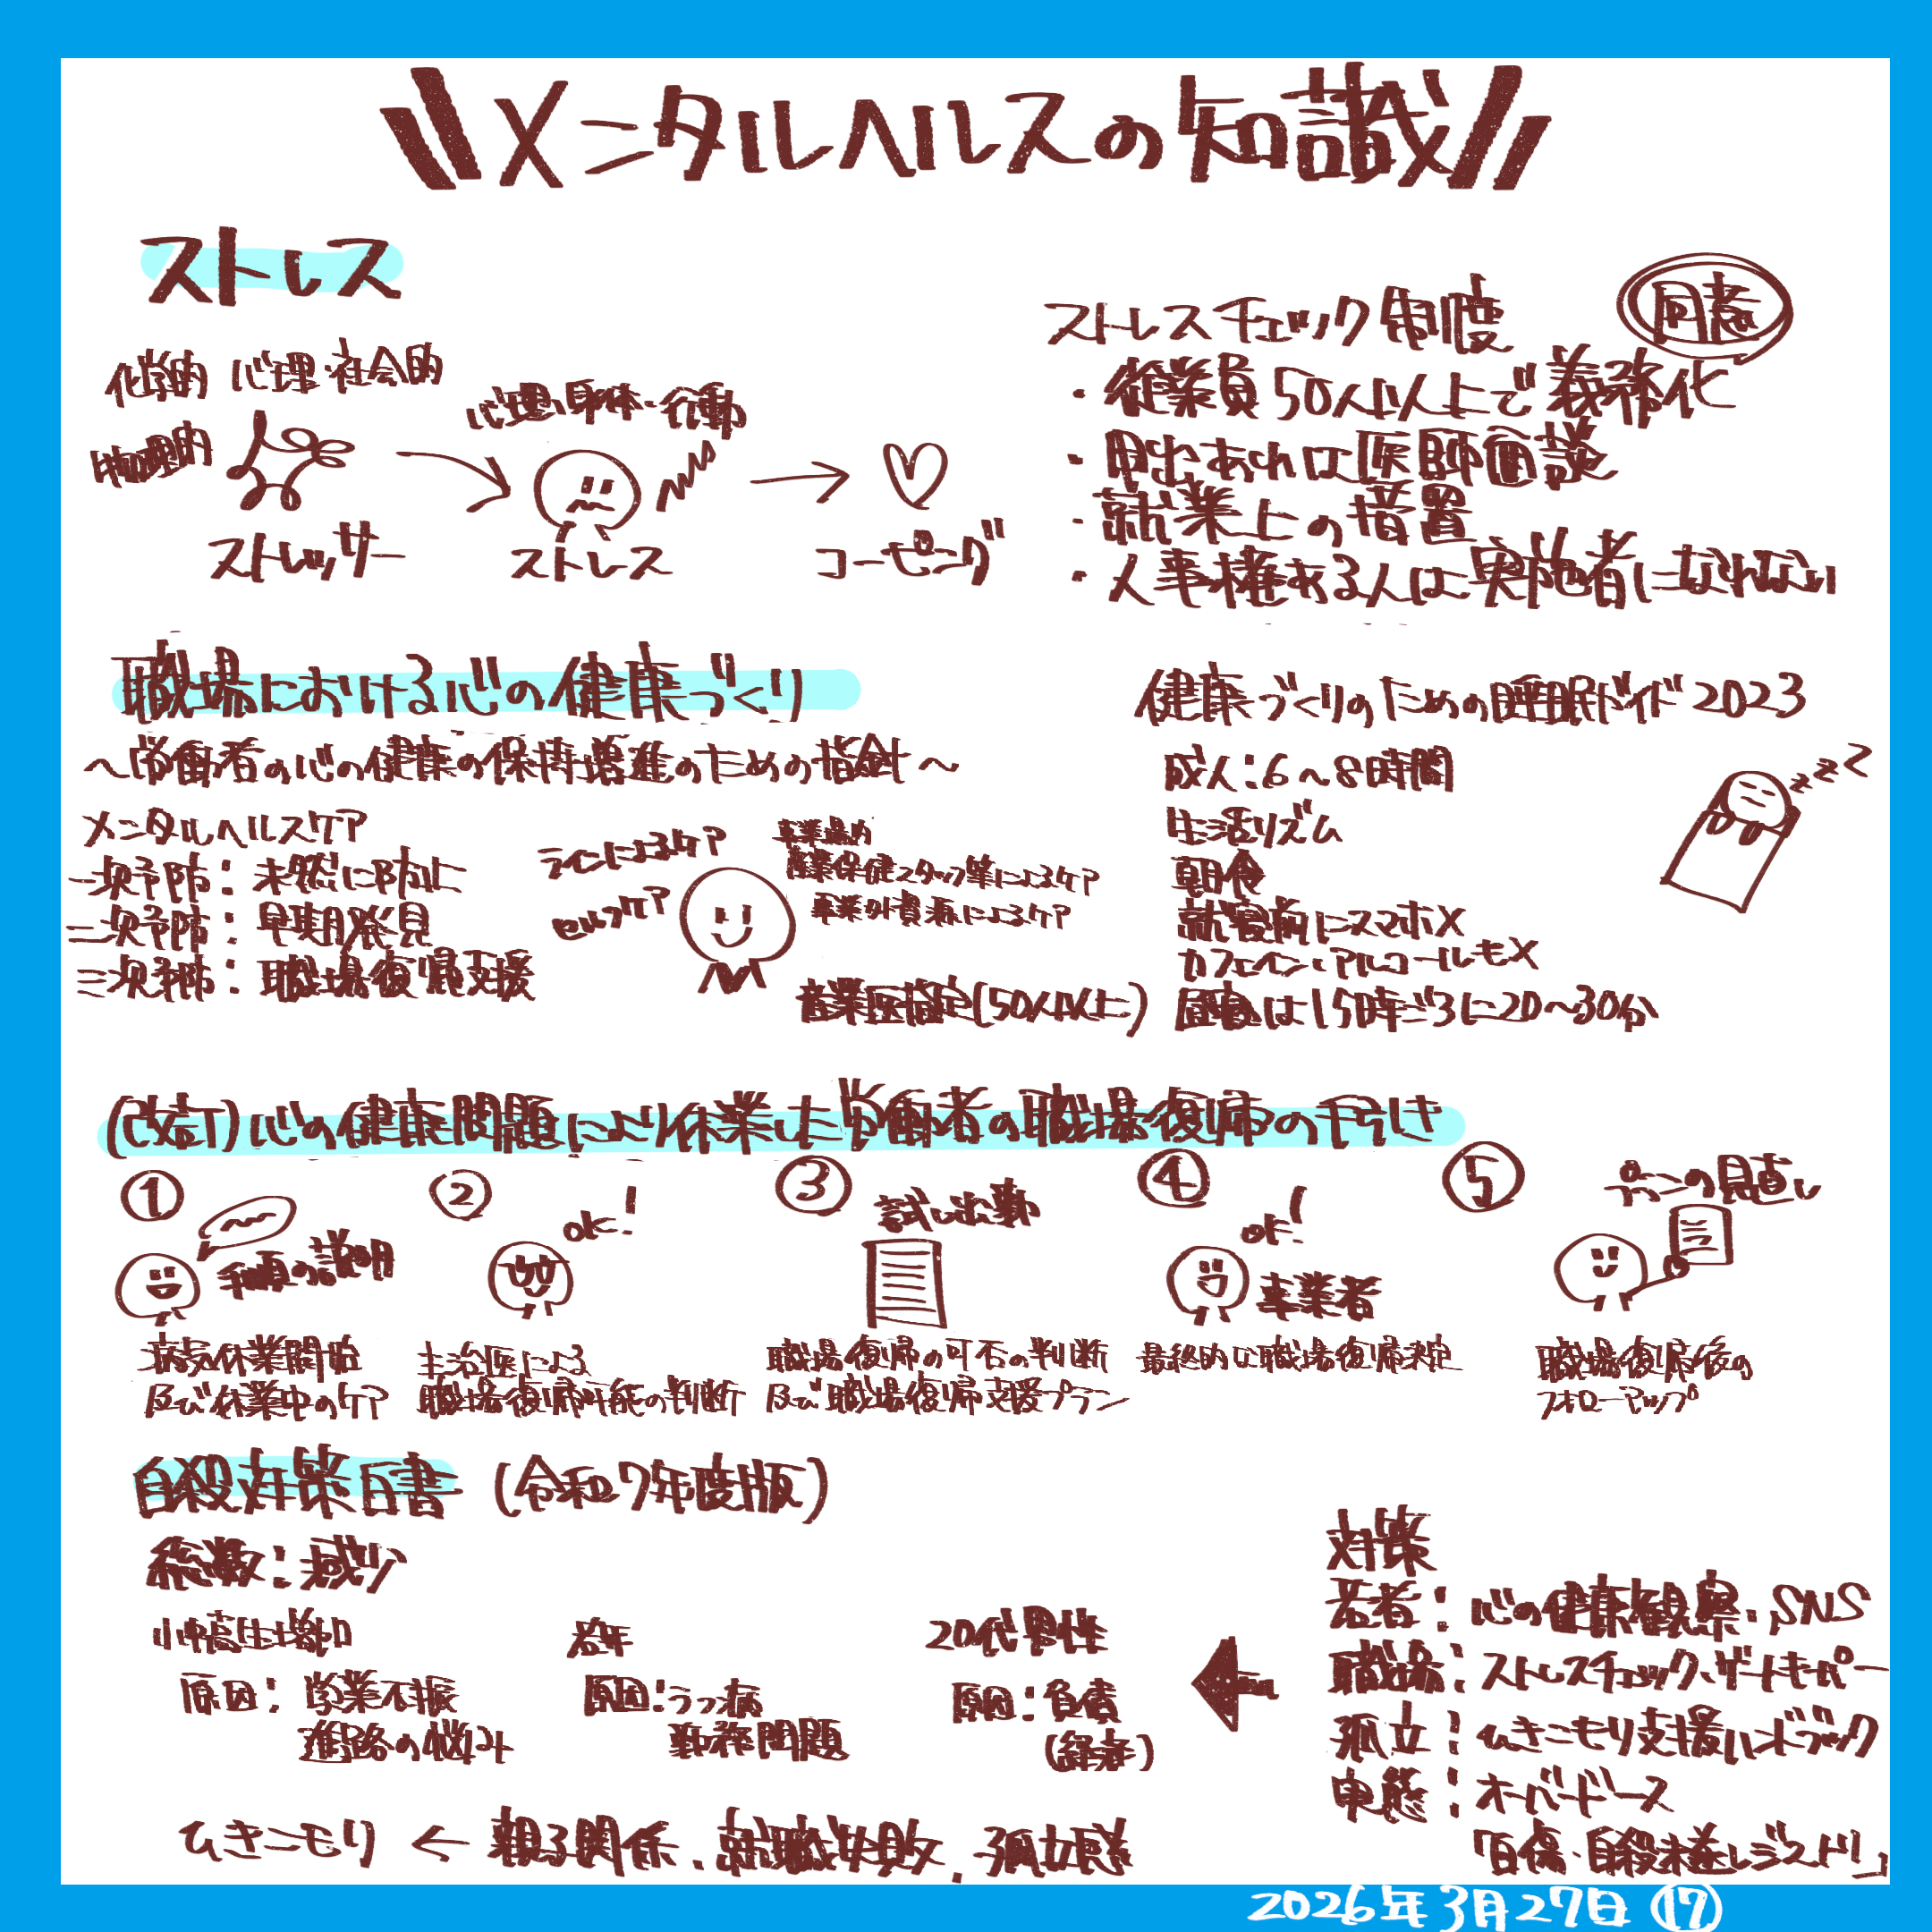 メンタルヘルスの知識
ストレス
化学的 心理・社会的
物理的
ストレッサー
心理・身体・行動
ストレス
コーピング
ストレスチェック制度
同意
・従業員50人以上で義務化
・申出あれば医師面談
・就業上の措置
・人事権ある人は実施者になれない
職場における心の健康づくり
〜労働者の心の健康の保持増進のための指針〜
メンタルヘルスケア
一次予防:未然に防止
二次予防:早期発見
三次予防:職場復帰支援
ラインによるケア
セルフケア
事業場内
産業保健スタッフ等によるケア
事業場外資源によるケア
産業医選定(50人以上)
健康づくりのための睡眠ガイド2023
成人:6〜8時間
生活リズム
朝食
就寝前にスマホX
カフェイン・アルコールもX
昼寝は15時ごろに20〜30分
zzz
(改訂)心の健康問題により休業した労働者の職場復帰の手引き
①
手順の説明
病気休業開始
及び休業中のケア
②
ok!
主治医による
職場復帰可能の判断
③
試し出勤
職場復帰の可否の判断
及び職場復帰支援プラン
④
ok!
事業者
最終的な職場復帰決定
⑤
プランの見直し
職場復帰後の
フォローアップ
自殺対策白書(令和7年度版)
総数:減少
小中高生増加
原因:学業不振
進路の悩み
若年
原因:うつ病
勤務問題
20代男性
原因:負債
ひきこもり←親子関係、就職失敗、孤立感
対策
若者:心の健康観察、SNS
職場:ストレスチェック、ゲートキーパー
孤立:ひきこもり支援ハンドブック
実態:オーバードース
「自傷・自殺未遂レジストリ」
2026年3月27日 ⑰